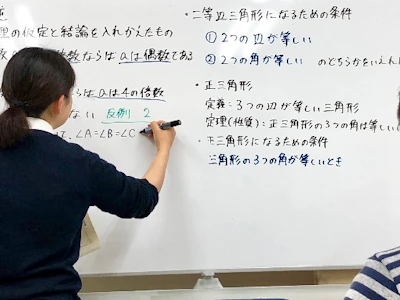 逆
理の仮定と結論を入れかえたもの
数ならば aは偶数である
らば aは4の倍数
ない 反例 2
、∠A=∠B=∠C
・二等辺三角形になるための条件
①2つの辺が等しい
②2つの角が等しい のどちらかをいえれ
・正三角形
定義:3つの辺が等しい三角形
定理(性質):正三角形の3つの角は等しい
・正三角形になるための条件
三角形の3つの角が等しいとき